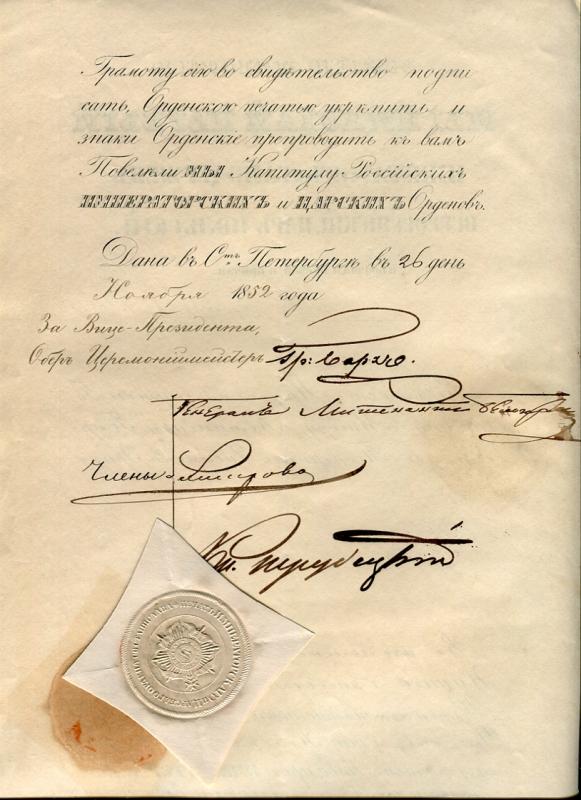 Грамоту сію во свидѣтельство подпи
сать, Орденскою печатью укрѣпить и
знаки Орденскіе препроводить къ вамъ
Повелѣли МЫ Капитулу Россійскихъ
ИМПЕРАТОРСКИХЪ и ЦАРСКИХЪ Орденовъ.
Дана въ Стъ Петербургѣ въ 26 день
Ноября 1852 года
За Вице-Президента,
Оберъ Церемоніймейстеръ Гр: Борхъ.
Генералъ Лейтенантъ
Члены
Кн. Трубецкій